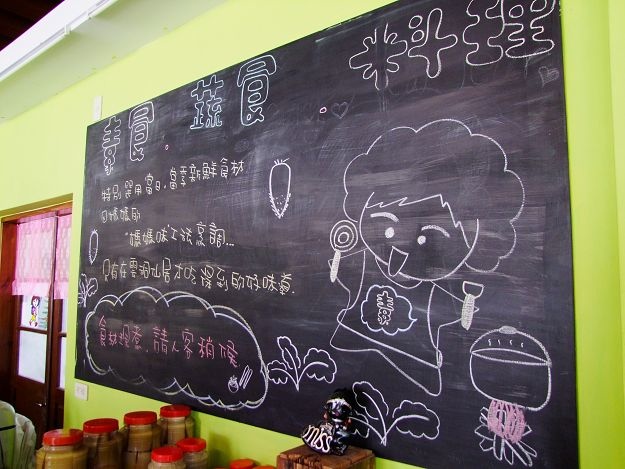 素食．蔬食．料理
特別選用當日,當季新鮮食材
媽媽的
"媽媽味"工法烹調...
只有在雲洞山居才吃得到的好味道.
素
食材現煮,請人客稍候
miss